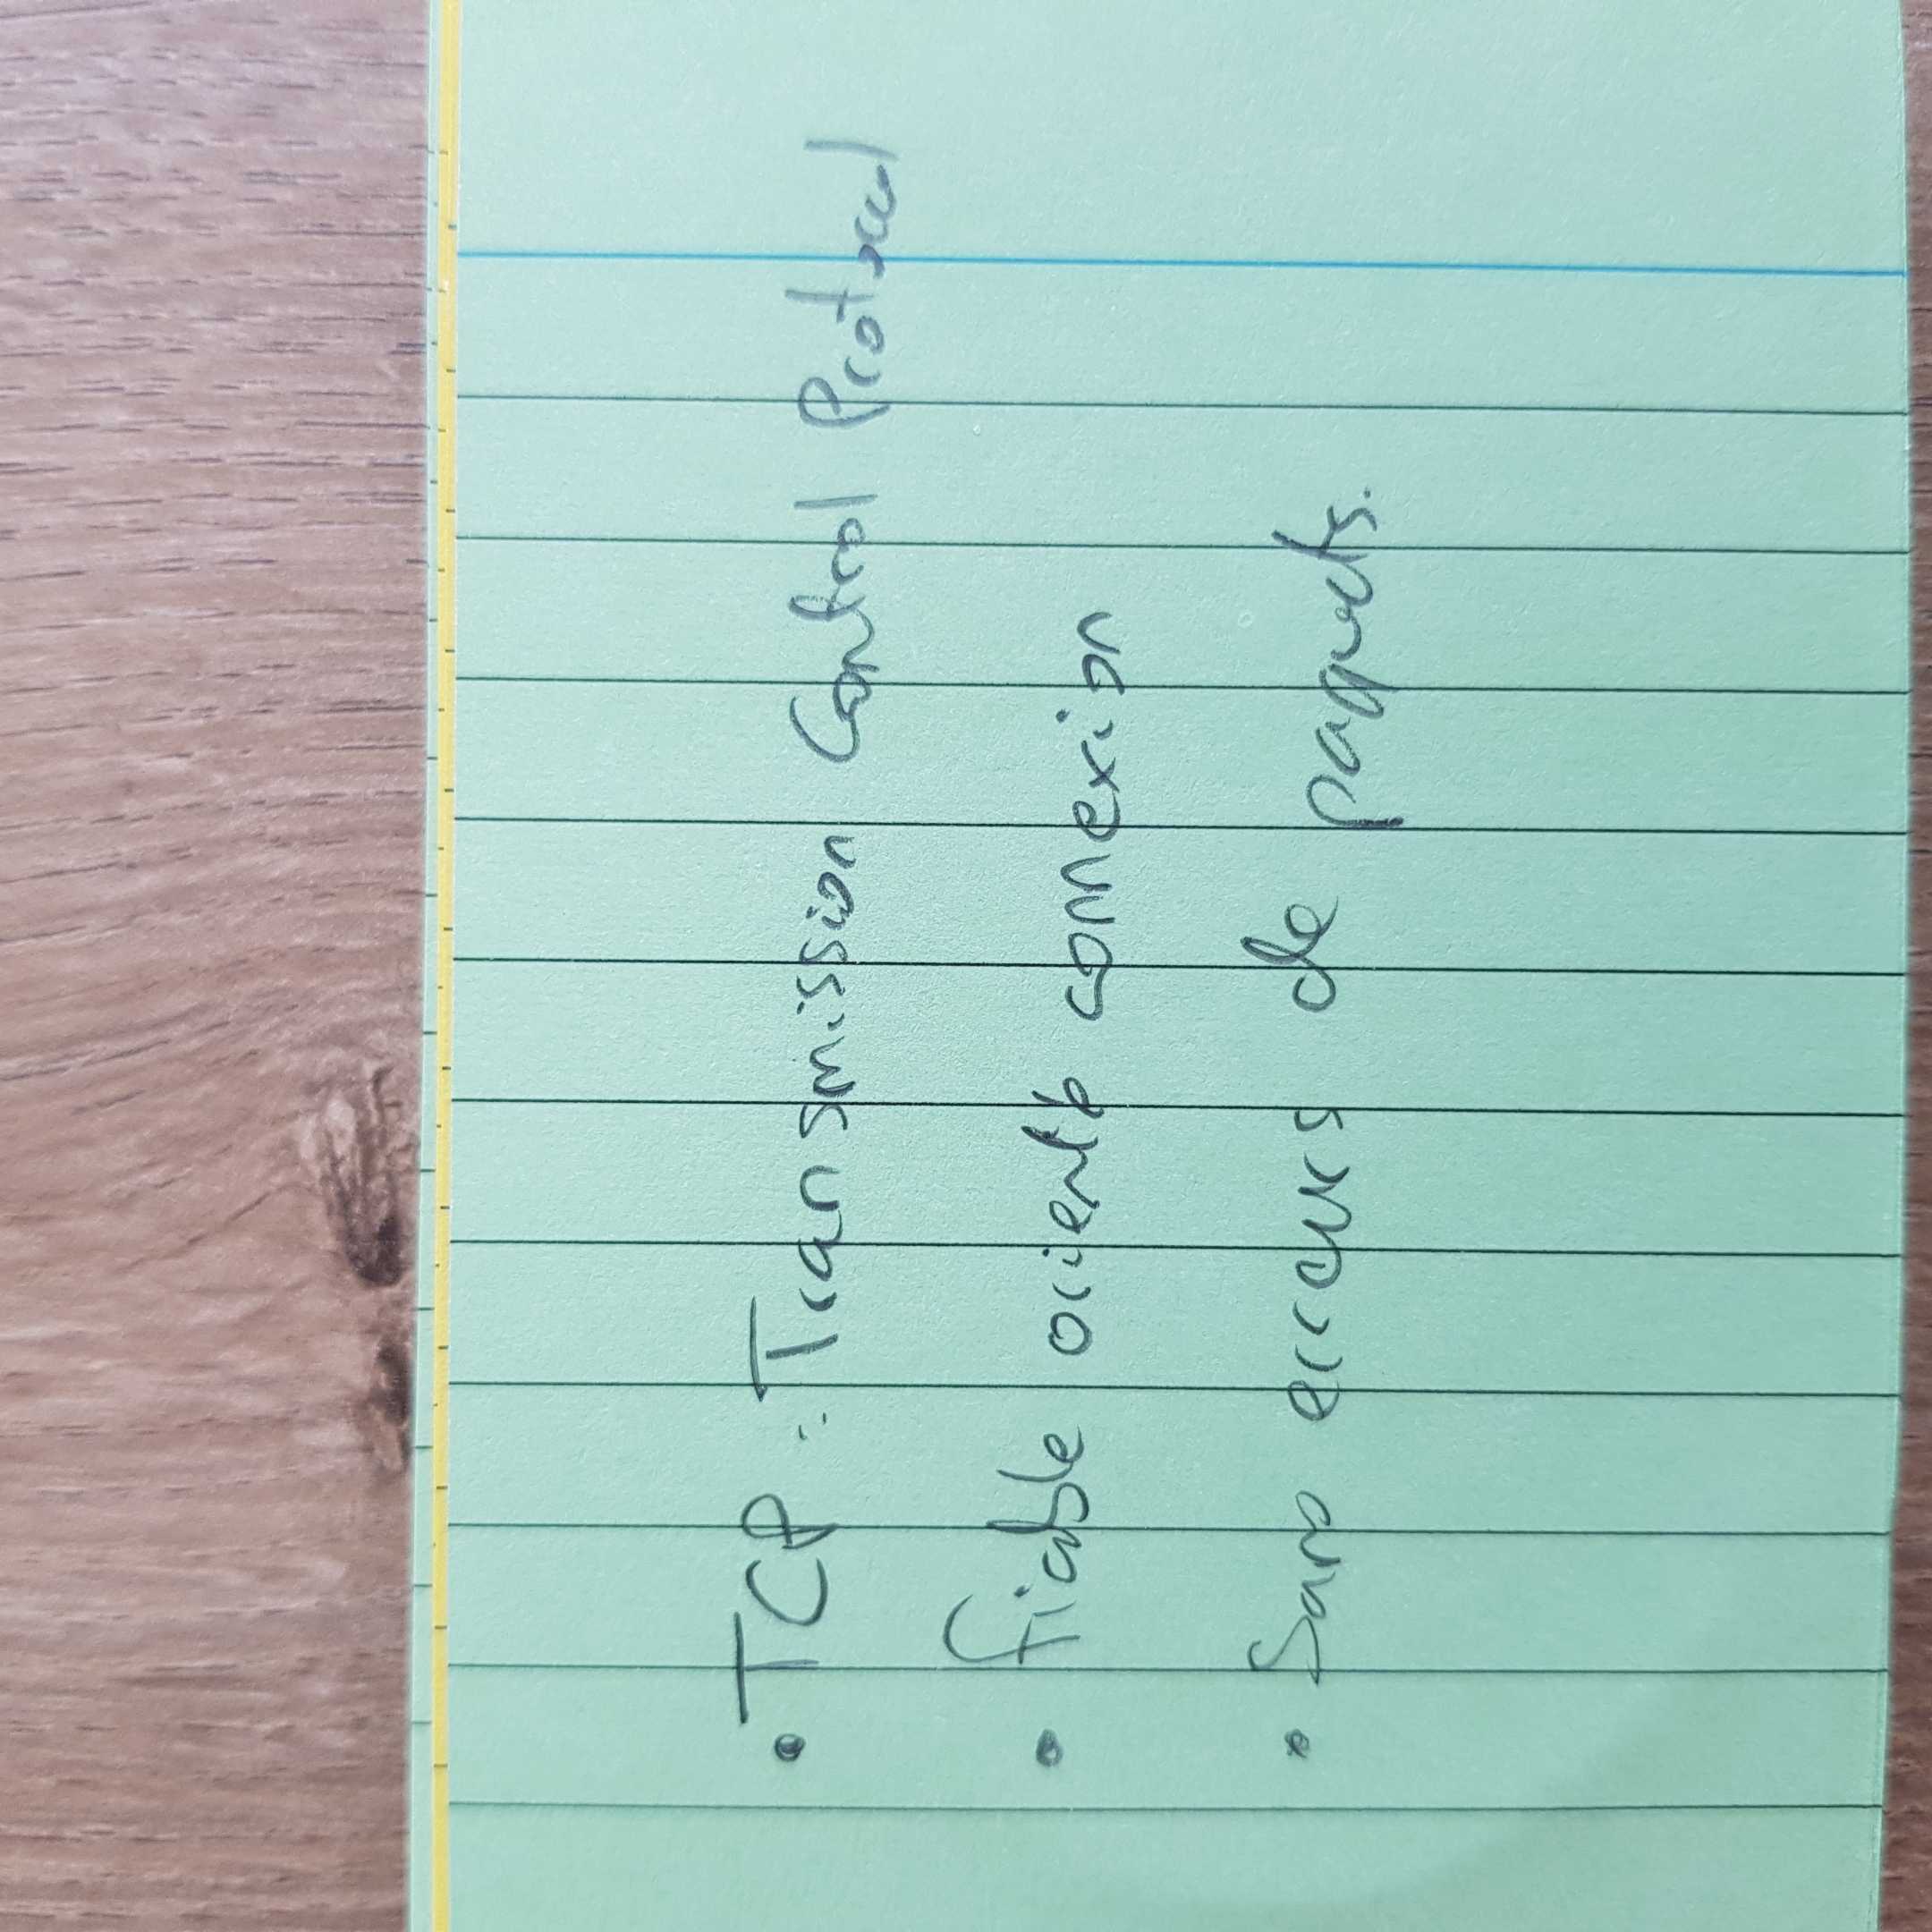 • TCP : Transmission Control Protocol
• fiable orienté connexion
• Sans erreurs de paquets.